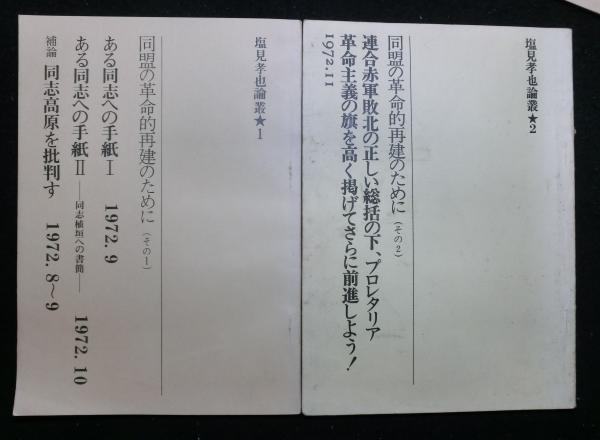 塩見孝也論叢★2
同盟の革命的再建のために（その2）
連合赤軍敗北の正しい総括の下、プロレタリア
革命主義の旗を高く掲げてさらに前進しよう！
1972.11
塩見孝也論叢★1
同盟の革命的再建のために（その1）
ある同志への手紙Ⅰ 1972.9
ある同志への手紙Ⅱ——同志植垣への書簡—— 1972.10
補論 同志高原を批判す 1972.8〜9